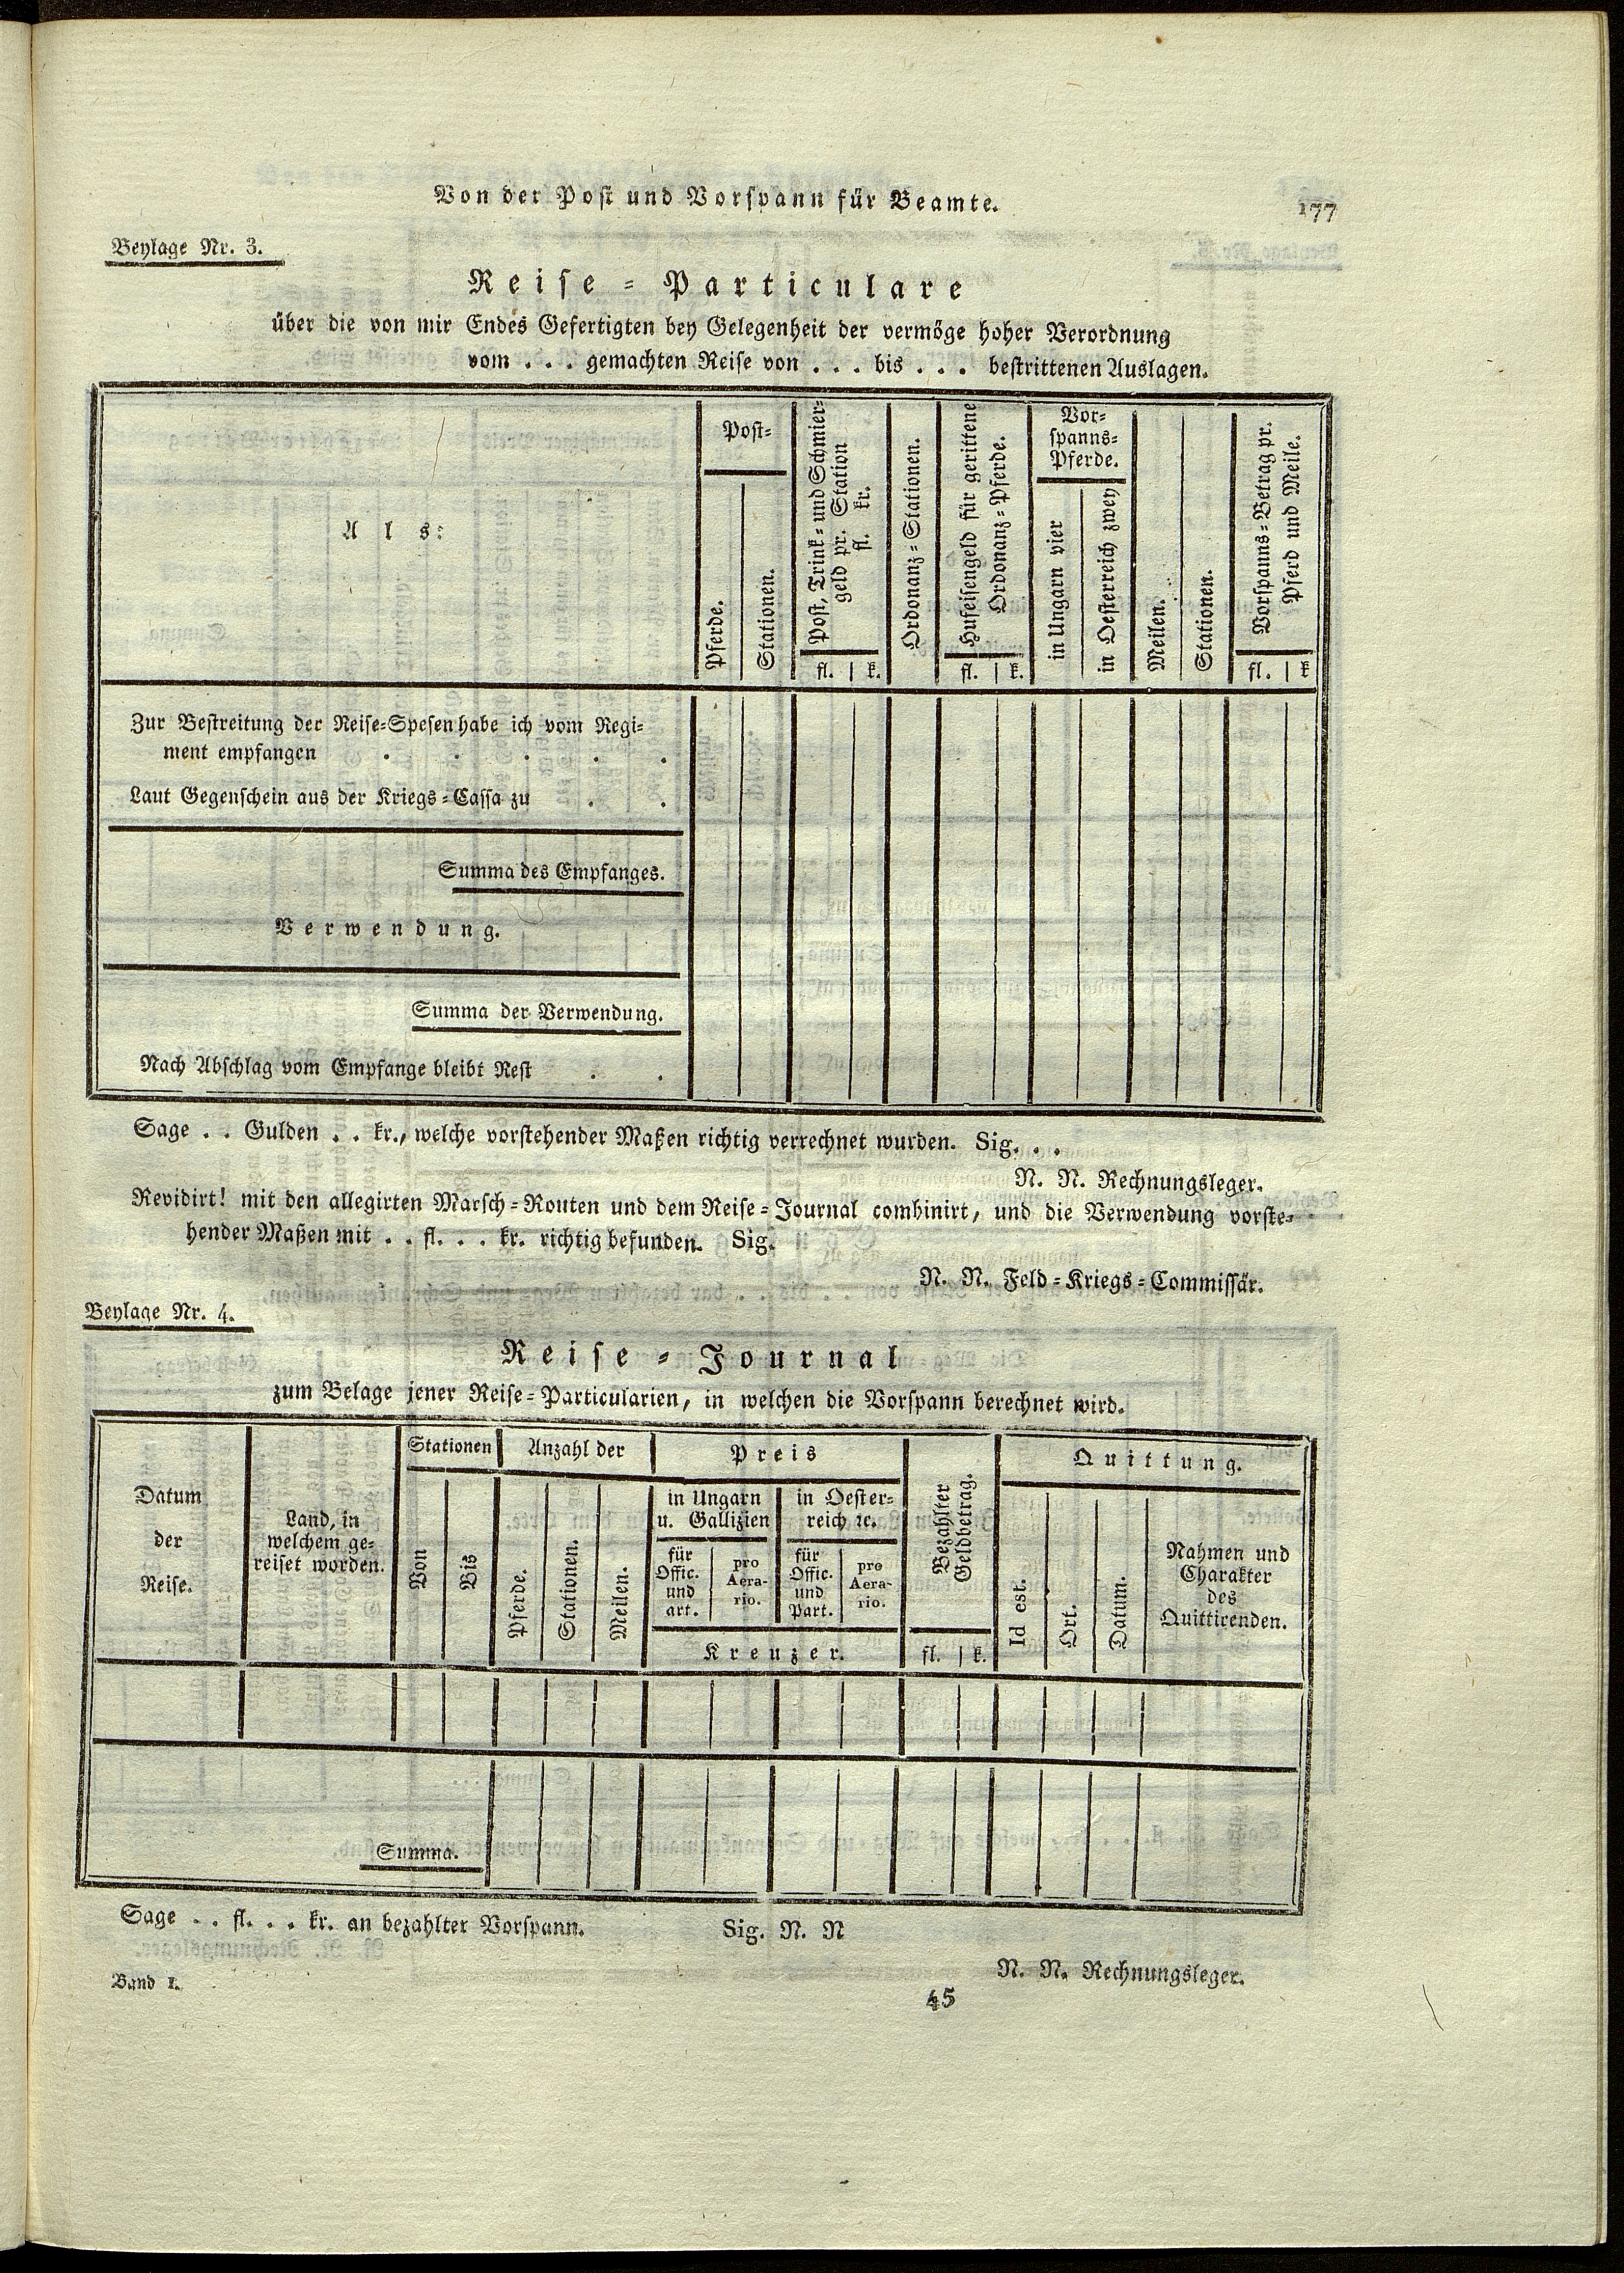 Von der Post und Vorspann für Beamte.
177
Beylage Nr. 3.
Reise-Particulare
über die von mir Endes Gefertigten bey Gelegenheit der vermöge hoher Verordnung
vom . . . gemachten Reise von . . . bis . . . bestrittenen Auslagen.
Als:
Post-
Pferde.
Stationen.
Post, Trink- und Schmier-
geld pr. Station
fl. kr.
fl. | k.
Ordonanz-Stationen.
Hufeisengeld für gerittene
Ordonanz-Pferde.
fl. | k.
Vor-
spanns-
Pferde.
in Ungarn vier
in Oesterreich zwey
Meilen.
Stationen.
Vorspanns-Betrag pr.
Pferd und Meile.
fl. | k
Zur Bestreitung der Reise-Spesen habe ich vom Regi-
ment empfangen . . . . .
Laut Gegenschein aus der Kriegs-Cassa zu . .
Summa des Empfanges.
Verwendung.
Summa der Verwendung.
Nach Abschlag vom Empfange bleibt Rest . .
Sage . . Gulden . . kr., welche vorstehender Maßen richtig verrechnet wurden. Sig. . .
N. N. Rechnungsleger.
Revidirt! mit den allegirten Marsch-Routen und dem Reise-Journal combinirt, und die Verwendung vorste-
hender Maßen mit . . fl. . . kr. richtig befunden. Sig.
N. N. Feld-Kriegs-Commissär.
Beylage Nr. 4.
Reise-Journal
zum Belage jener Reise-Particularien, in welchen die Vorspann berechnet wird.
Datum
der
Reise.
Land, in
welchem ge-
reiset worden.
Stationen
Von
Bis
Anzahl der
Pferde.
Stationen.
Meilen.
Preis
in Ungarn
u. Gallizien
für
Offic.
und
art.
pro
Aera-
rio.
in Oester-
reich ꝛc.
für
Offic.
und
Part.
pro
Aera-
rio.
Kreuzer.
Bezahlter
Geldbetrag.
fl. | k.
Quittung.
Id est.
Ort.
Datum.
Nahmen und
Charakter
des
Quittirenden.
Summa.
Sage . . fl. . . kr. an bezahlter Vorspann. Sig. N. N
N. N. Rechnungsleger.
Band I.
45